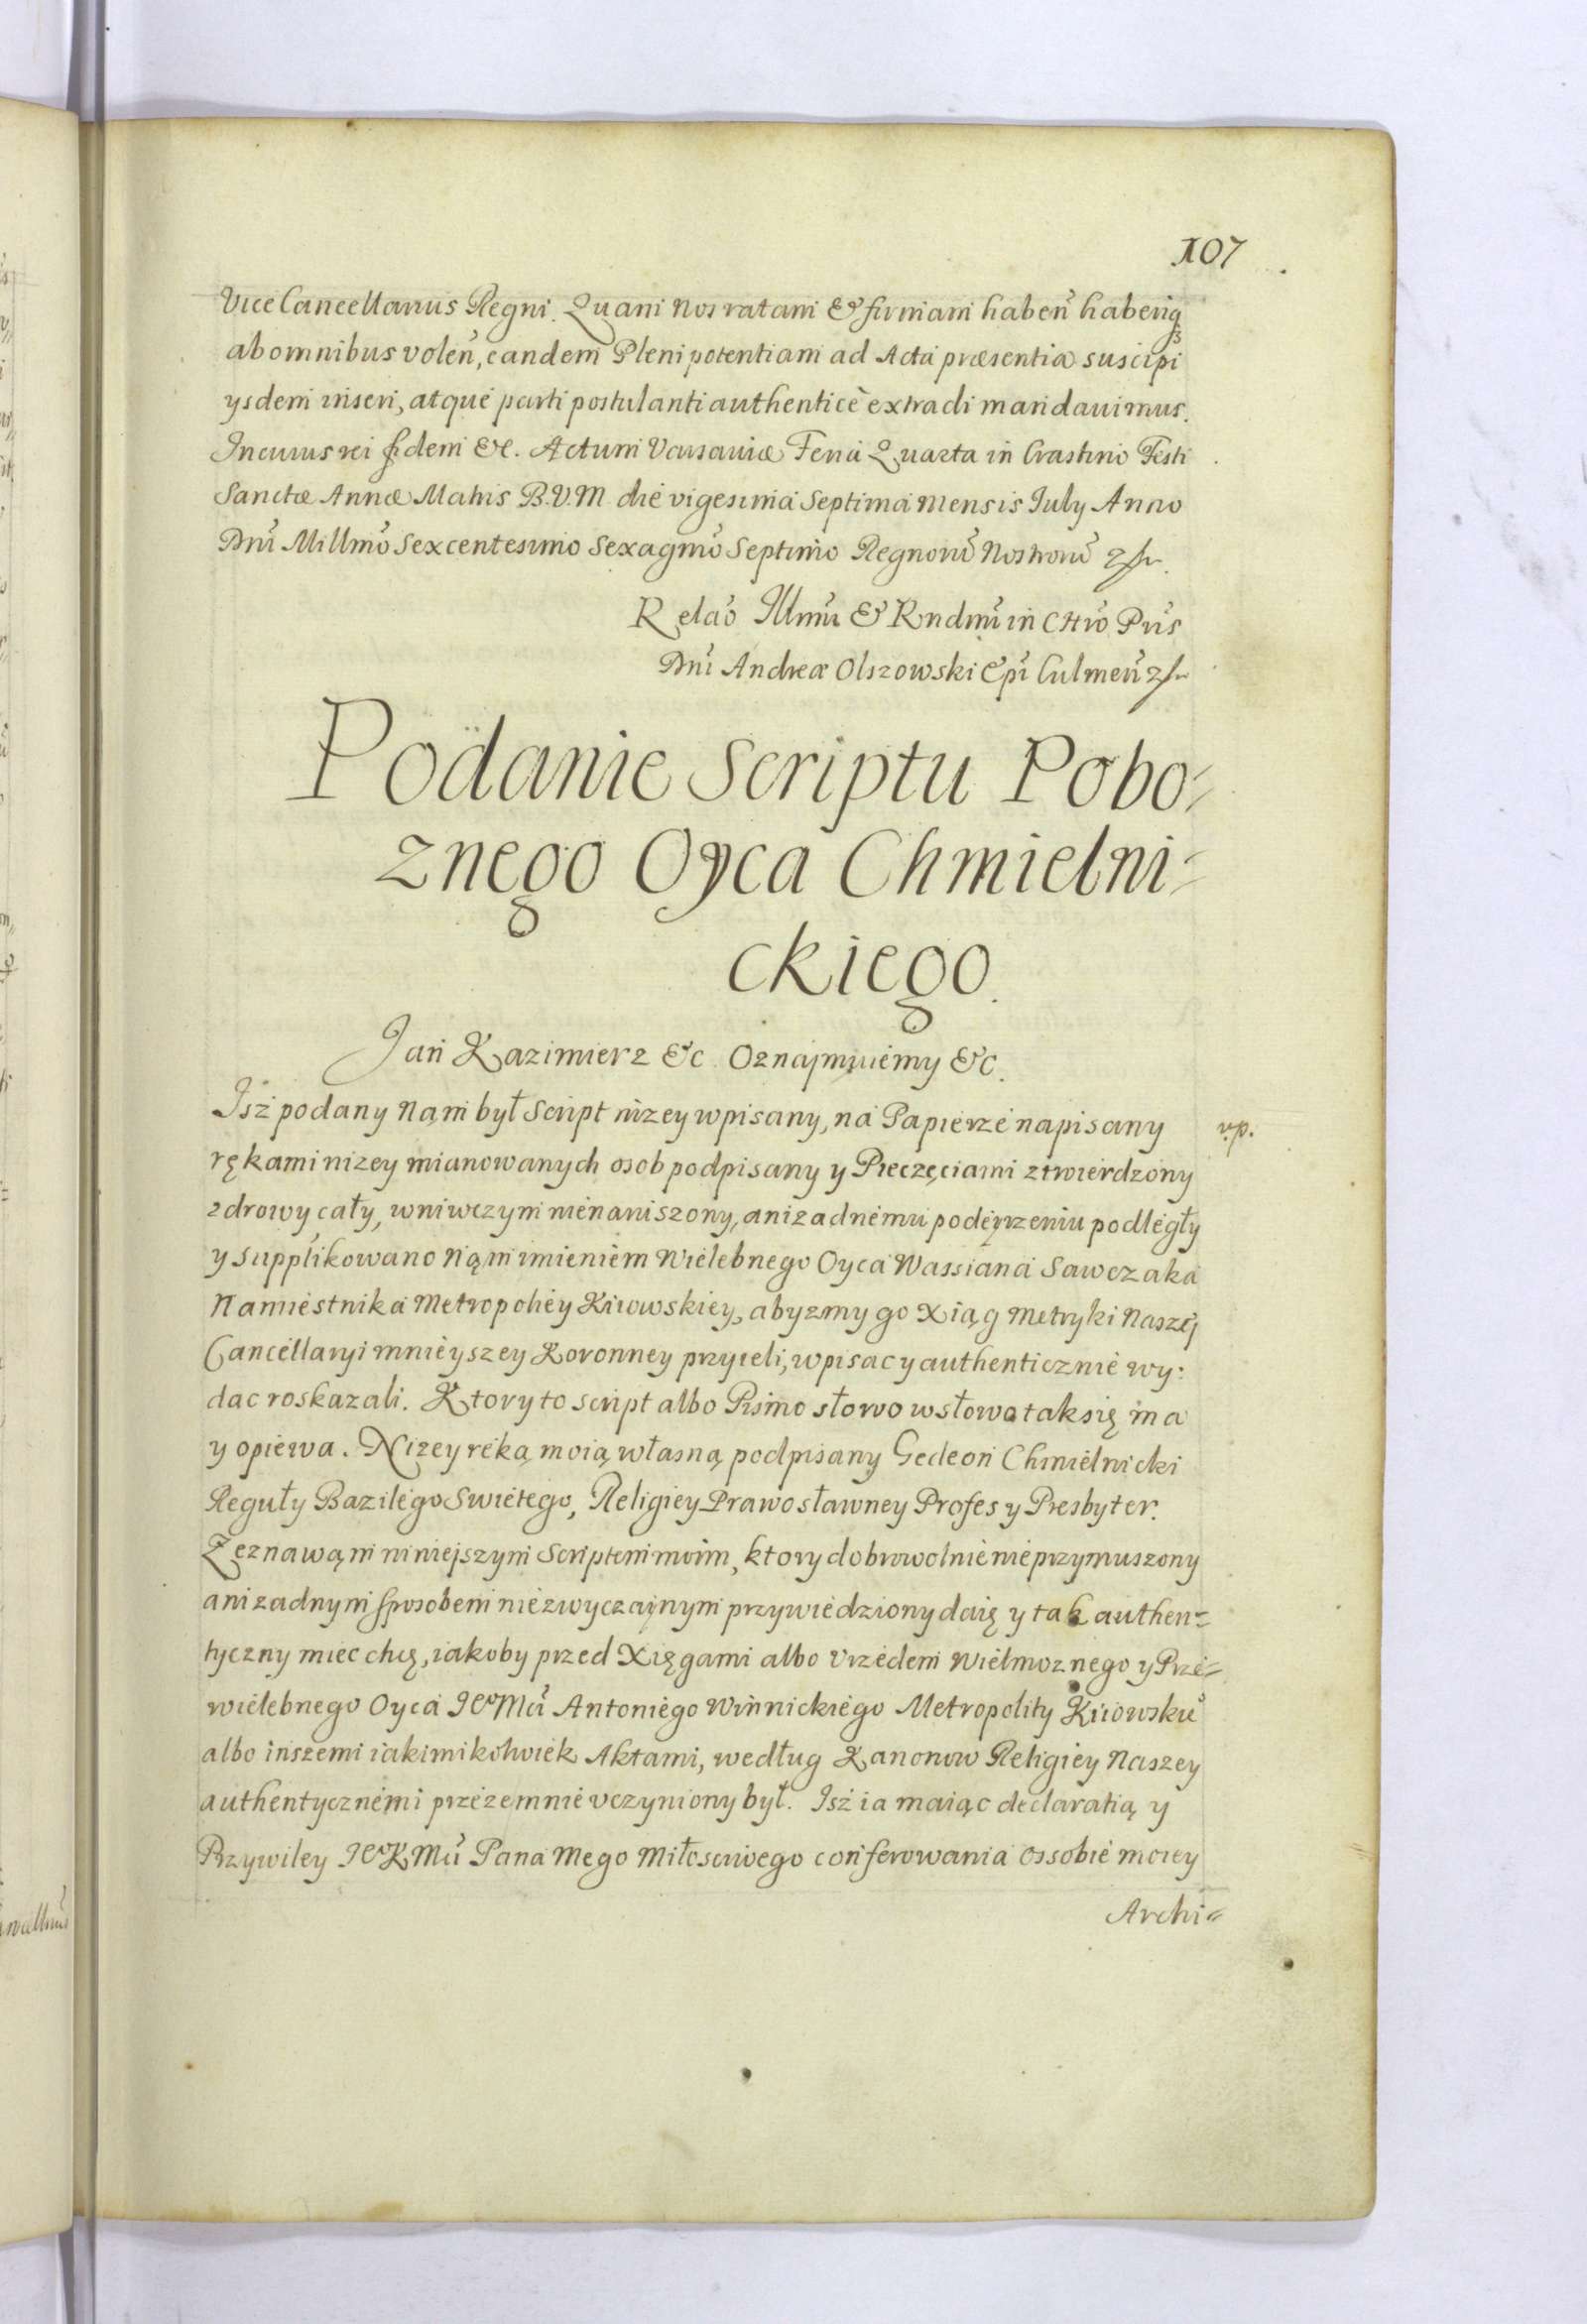 107
ViceCancellarius Regni. Quam Nos ratam & firmam habeñ haberiq3
ab omnibus voleñ, eandem Plenipotentiam ad Acta præsentia suscipi
ysdem inseri, atque parti postulanti authenticè extradi mandavimus.
In cuius rei fidem &c. Actum Varsaviæ Feria Quarta in Crastino Festi
Sanctæ Annæ Matris B.V.M die vigesima Septima mensis July Anno
Dnĩ Millmõ Sexcentesimo Sexagmõ Septimo Regnorũ Nostrorũ
Relaõ Illmũ & Rndmũ in Chrõ Pris
Dnĩ Andreæ Olszowski Epĩ Culmeñ
Podanie Scriptu Pobo=
znego Oyca Chmielni=
ckiego.
Jan Kazimierz &c Oznajmuiemy &c.
Isz podany Nam był Script niżey wpisany, na Papierze napisany
rękami niżey mianowanych osob podpisany y Pieczęciami ztwierdzony
zdrowy cały, wniwczym nienaruszony, ani żadnemu podeyrzeniu podległy
y supplikowano Nąm imieniem Wielebnego Oyca Wassiana Sawczaka
Namiestnika Metropoliey Kiiowskiey, abyzmy go Xiąg Metryki Naszej
Cancellaryi mnieyszey Koronney przyieli, wpisac y authenticznie wy:
dac roskazali. Ktory to script albo Pismo słowo wsłowo tak się ma
y opiewa. Niżey reką moią własną podpisany Gedeon Chmielnicki
Reguły Bazilego Swietego, Religiey Prawosławney Profes y Presbyter.
Zeznawąm niniejszym Scriptem moim, ktory dobrowolnie nie przymuszony
ani żadnym sposobem niezwyczaynym przywiedziony daię y tak authen=
tyczny miec chcę, iakoby przed Xięgami albo Vrzedem Wielmoznego y Prze=
wielebnego Oyca JeoMci Antoniego Winnickiego Metropolity Kiiowskie
albo inszemi iakimikolwiek Aktami, według Kanonow Religiey Naszey
authentycznemi przezemnie vczyniony był. Isz ia maiąc declaratią y
Przywiley JeoKMci Pana Mego Miłosciwego conferowania ossobie moiey
Archi=